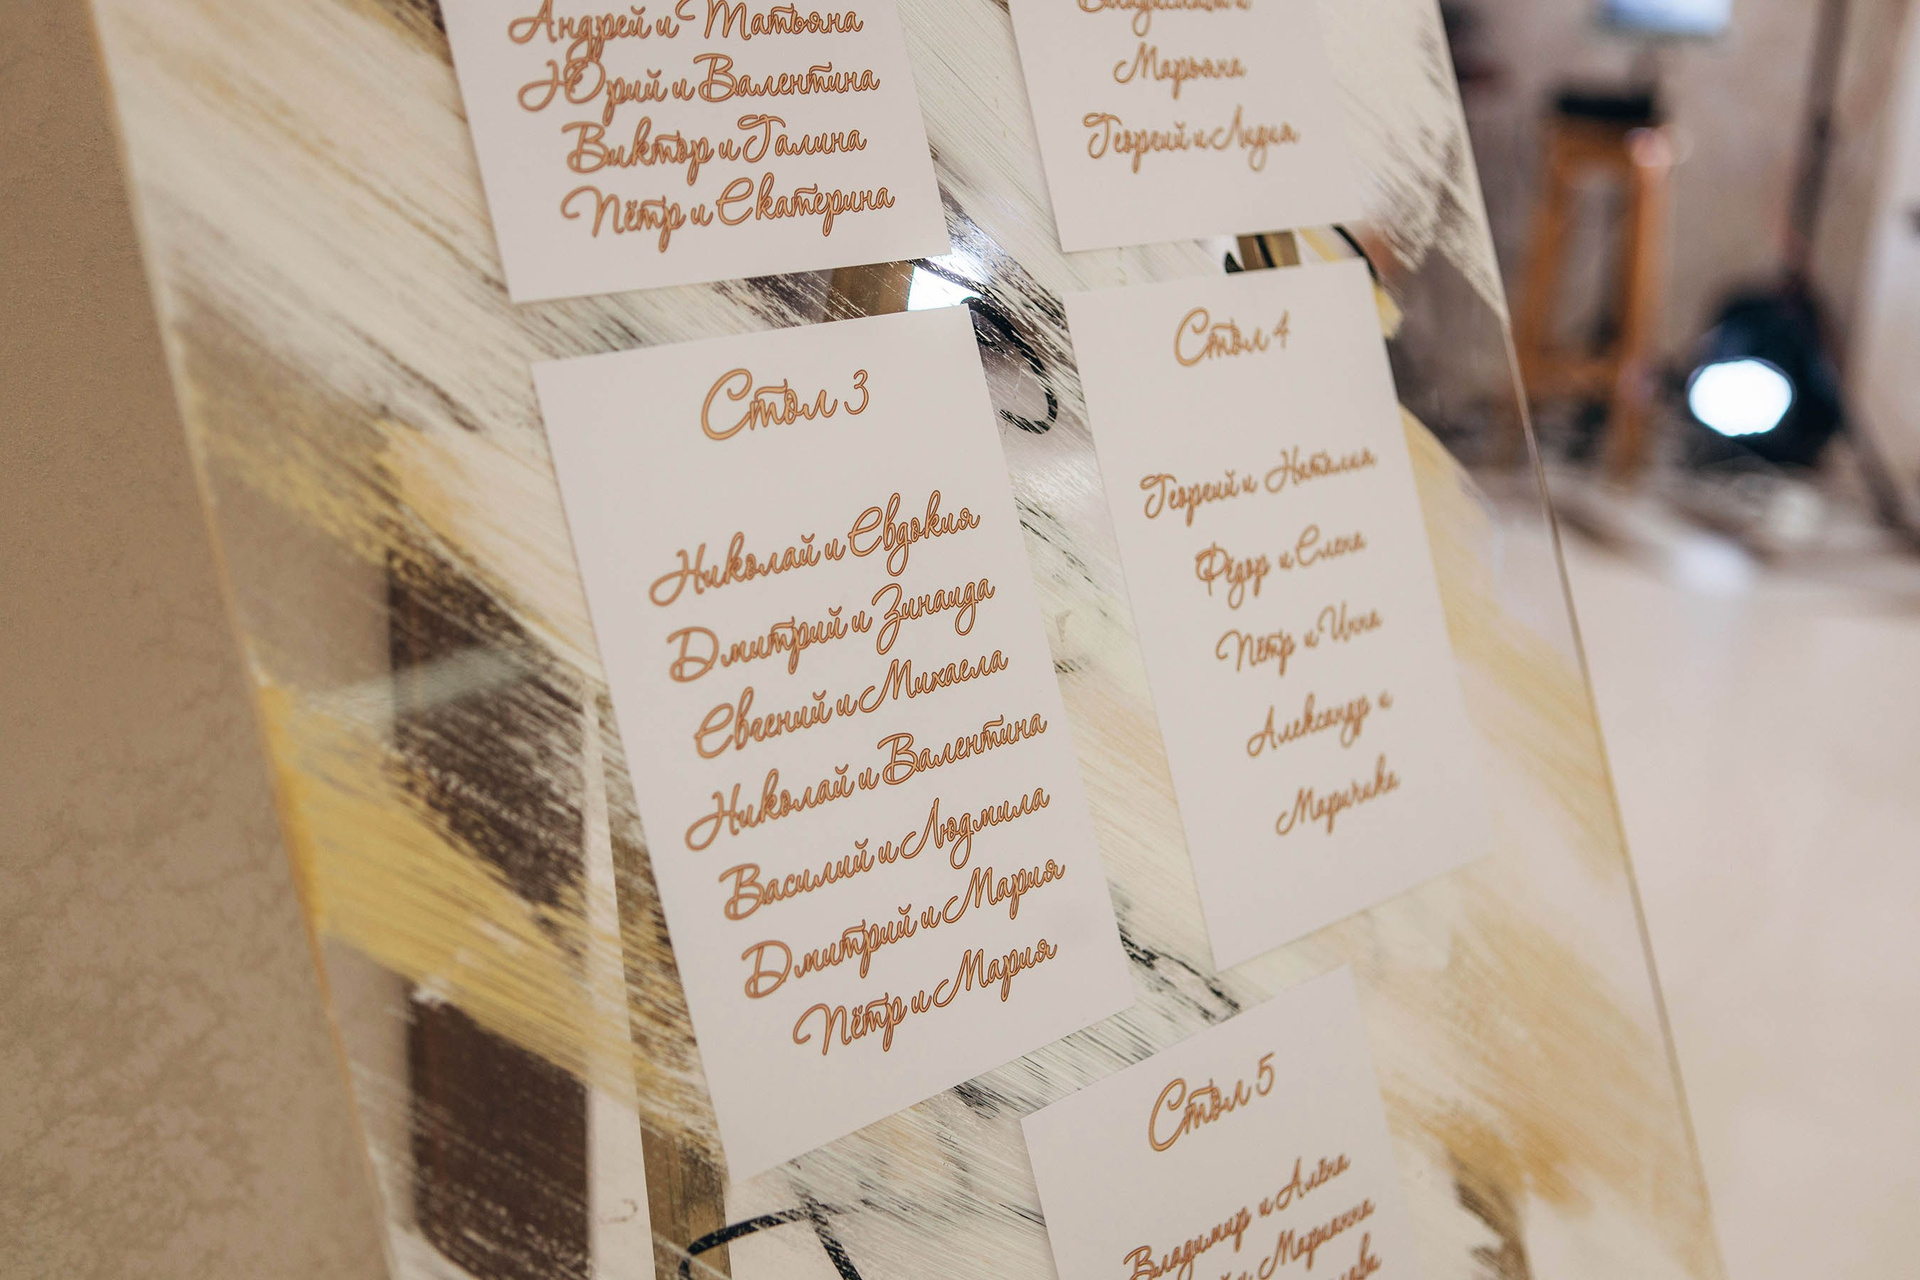 Андрей и Татьяна
Юрий и Валентина
Виктор и Галина
Пётр и Екатерина
Марьяна
Георгий и Лидия
Стол 3
Николай и Евдокия
Дмитрий и Зинаида
Евгений и Михаела
Николай и Валентина
Василий и Людмила
Дмитрий и Мария
Пётр и Мария
Стол 4
Георгий и Наталия
Фёдор и Елена
Пётр и Инна
Александр и
Маричика
Стол 5
Владимир и Алёна
и Марианна